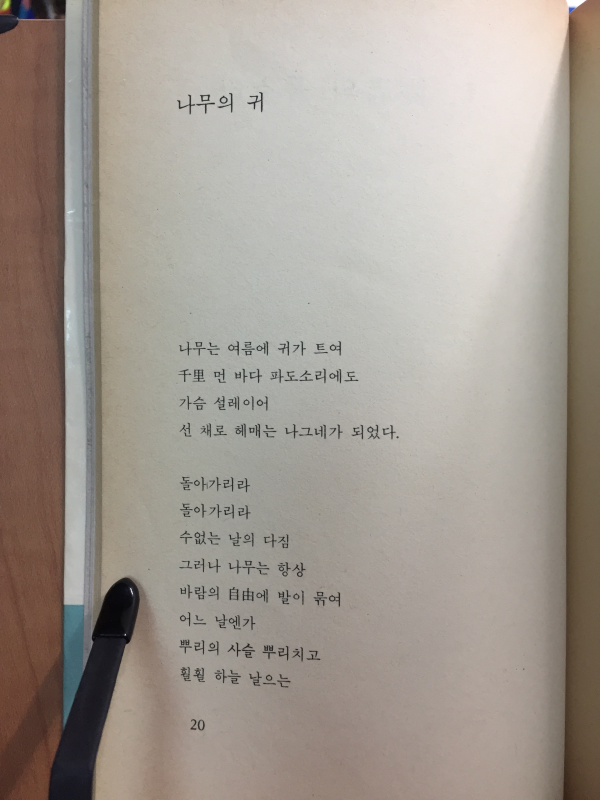 나무의 귀
나무는 여름에 귀가 트여
千里 먼 바다 파도소리에도
가슴 설레이어
선 채로 헤매는 나그네가 되었다.
돌아가리라
돌아가리라
수없는 날의 다짐
그러나 나무는 항상
바람의 自由에 발이 묶여
어느 날엔가
뿌리의 사슬 뿌리치고
훨훨 하늘 날으는
20